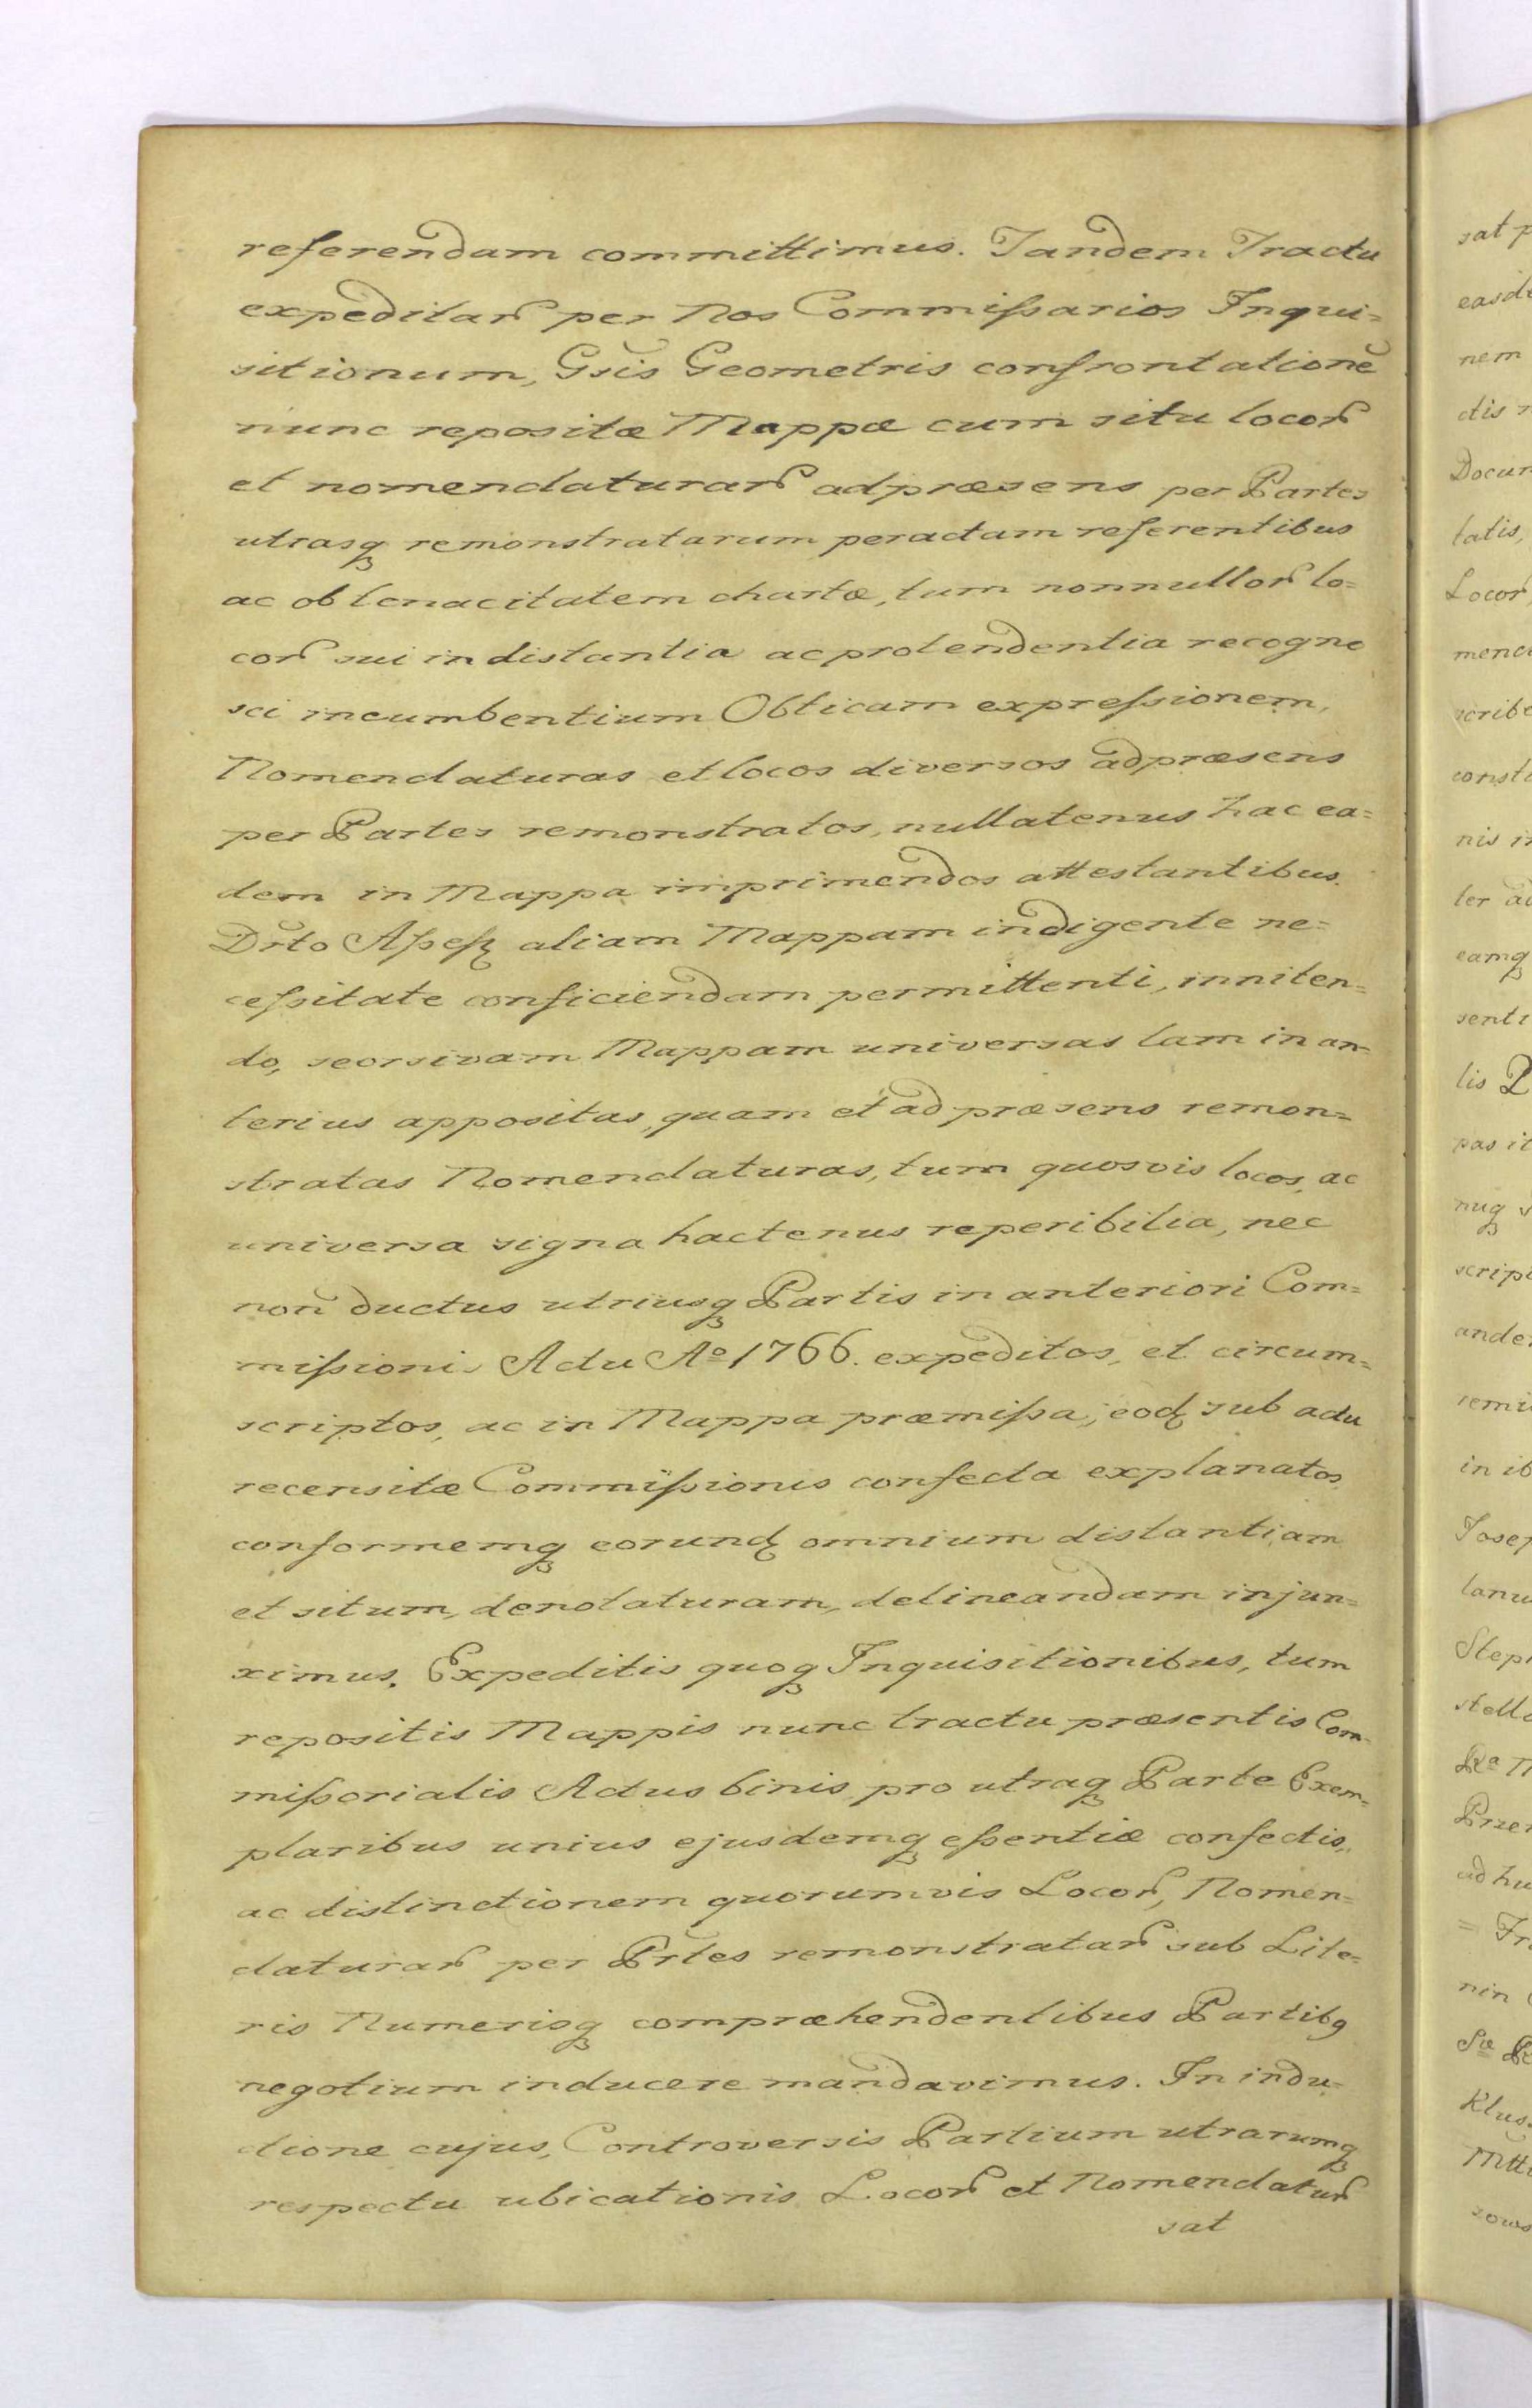 referendam committimus. Tandem Tractu
expeditarꝝ per Nos Commißarios Inqui=
sitionum, Gsis Geometris confrontationē
nunc repositæ Mappæ cum situ locorꝝ
et nomenclaturarꝝ adpræsens per Partes
utrasqꝫ remonstratarum peractam referentibus
ac ob tenacitatem chartæ, tum nonnullorꝝ lo=
corꝝ sui in distantia ac protendentia recogno
sci incumbentium Obticam expreßionem,
Nomenclaturas et locos diversos adpræsens
per Partes remonstratos, nullatenus hac ea=
dem in Mappa imprimendos attestantibus.
Drto aliam Mappam indigente ne=
ceßitate conficiendam permittenti, inniten=
do, seorsivam Mappam universas tam in an=
terius appositas, quam et ad præsens remon=
stratas Nomenclaturas, tum quosvis locos, ac
universa signa hactenus reperibilia, nec
non ductus utriusqꝫ Partis in anteriori Com=
mißionis Actu Aº 1766. expeditos, et circum=
scriptos, ac in Mappa præmißa, eodꝫ sub actu
recensitæ Commißionis confecta explanatos
conformemqꝫ eorundꝫ omnium distantiam
et situm, denotaturam, delineandam injun=
ximus. Expeditis quoqꝫ Inquisitionibus, tum
repositis Mappis nunc tractu præsentis Com=
mißorialis Actus binis pro utraqꝫ Parte Exem=
plaribus unius ejusdemqꝫ eßentiæ confectis,
ac distinctionem quorumvis Locorꝝ, Nomen=
claturarꝝ per Prtes remonstratarꝝ sub Lite=
ris Numerisqꝫ compræhendentibus Partibꝰ
negotium inducere mandavimus. In indu=
ctione cujus, Controversis Partium utrarumqꝫ
respectu ubicationis Locorꝝ et Nomenclaturꝝ
sat